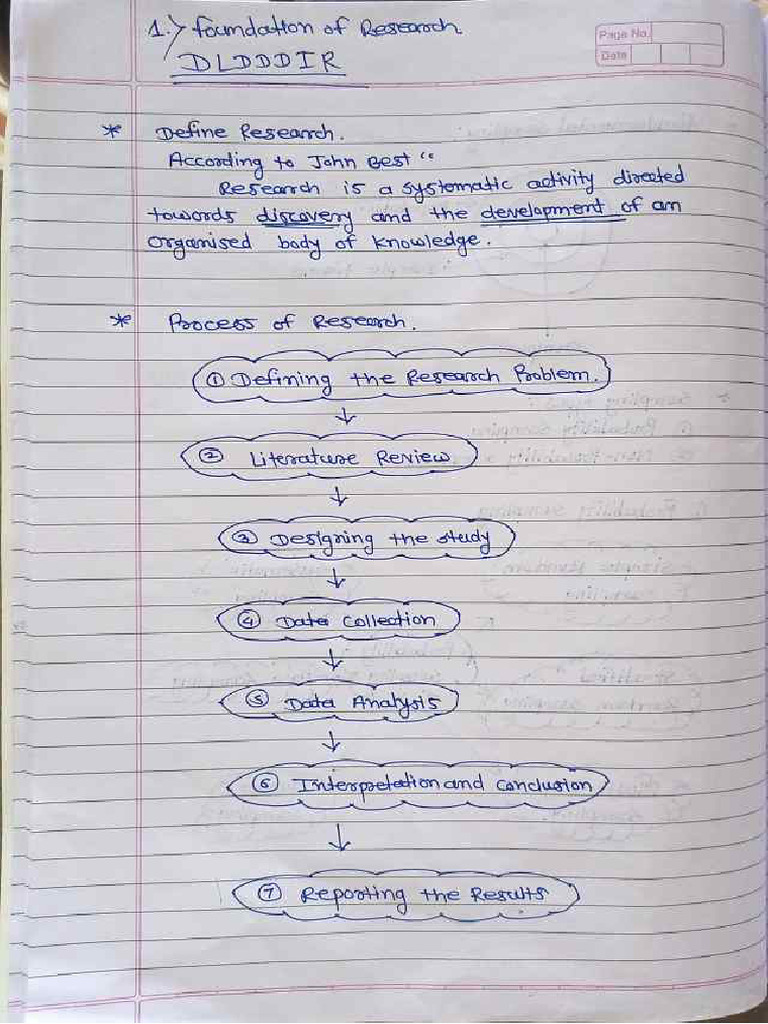 1.) Foundation of Research.
DLDDDIR
Page No.
Date
* Define Research.
According to John Best "
Research is a systematic activity directed
towards discovery and the development of an
organised body of knowledge.
* Process of Research.
① Defining the Research Problem.
↓
② Literature Review
↓
③ Designing the study
↓
④ Data Collection
↓
⑤ Data Analysis
↓
⑥ Interpretation and Conclusion
↓
⑦ Reporting the Results